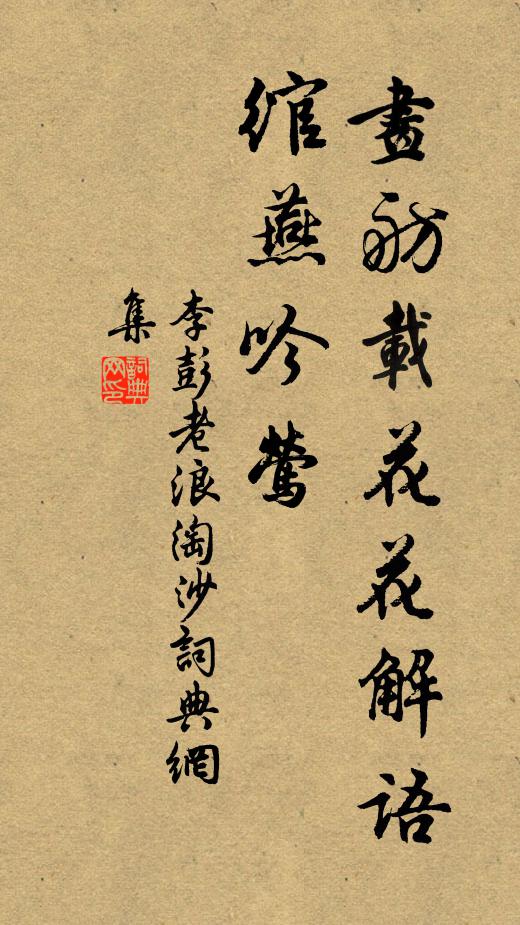 畫舫載花花解語
綰燕吟鶯
李彭老浪淘沙詞典網
集
詞典
网印